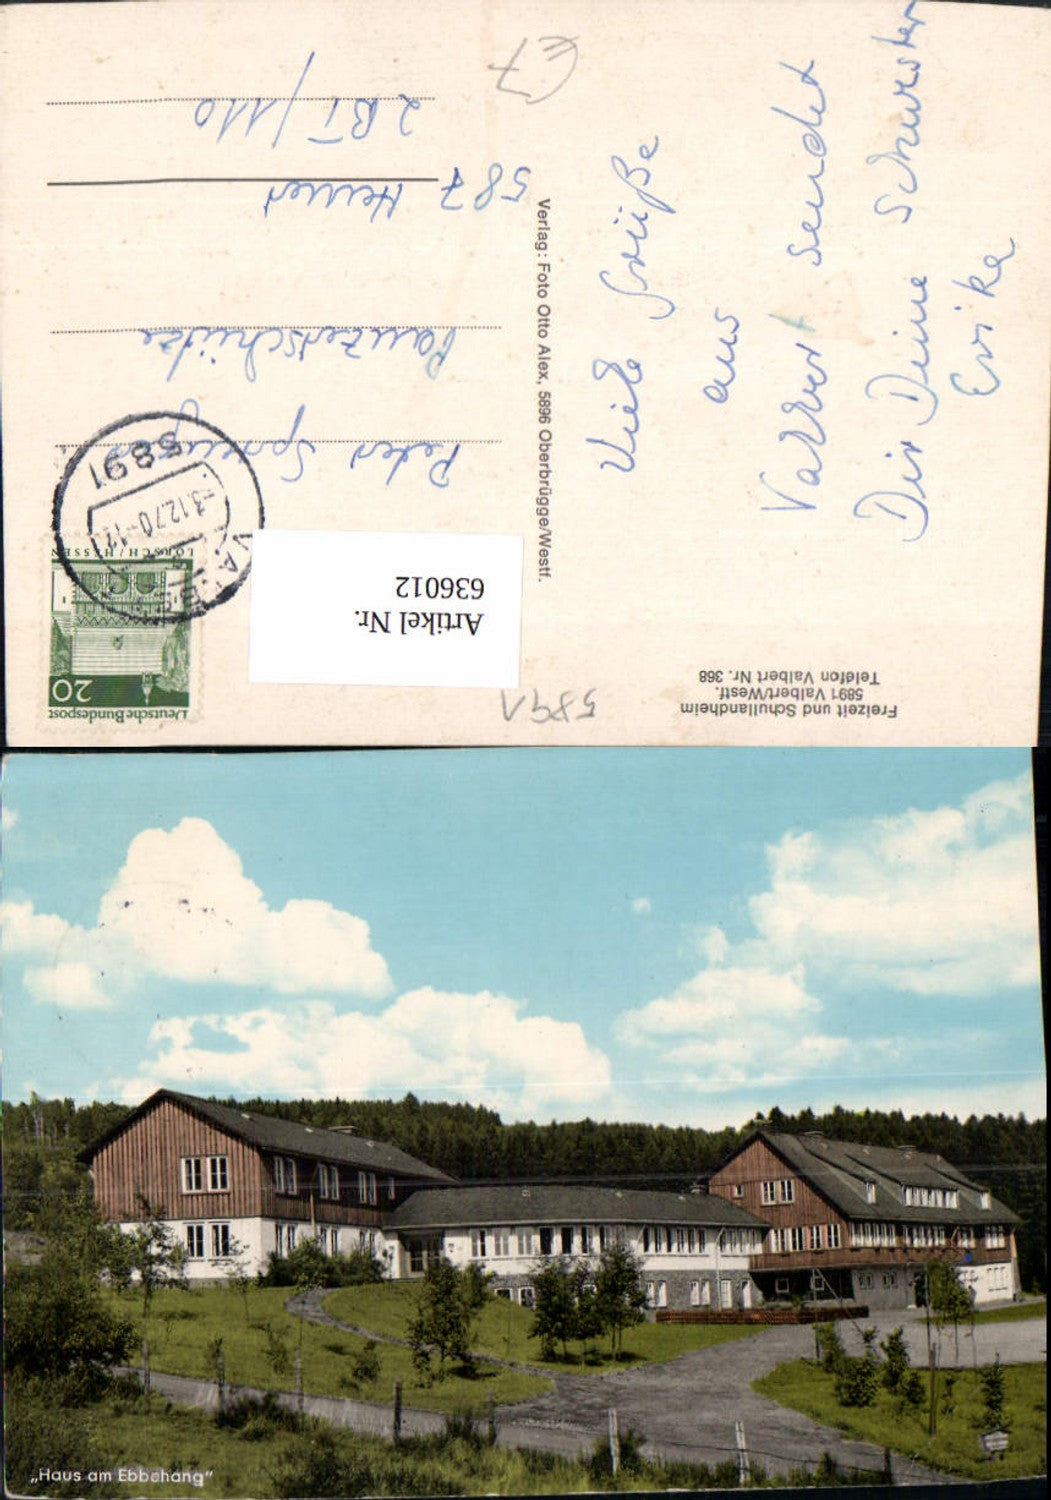 Freizeit und Schullandheim
5891 Valbert/Westf.
Telefon Valbert Nr. 368
5891
Deutsche Bundespost
20
LORSCH/HESSEN
5891
-3.12.70-12
VALBERT
Artikel Nr.
636012
Peter
Panzerschütze
587 Hemer
2 BT/110
Viele Grüße
aus
Valbert sendet
Dir Deine Schwester
Erika
Verlag: Foto Otto Alex, 5896 Oberbrügge/Westf.
„Haus am Ebbehang“